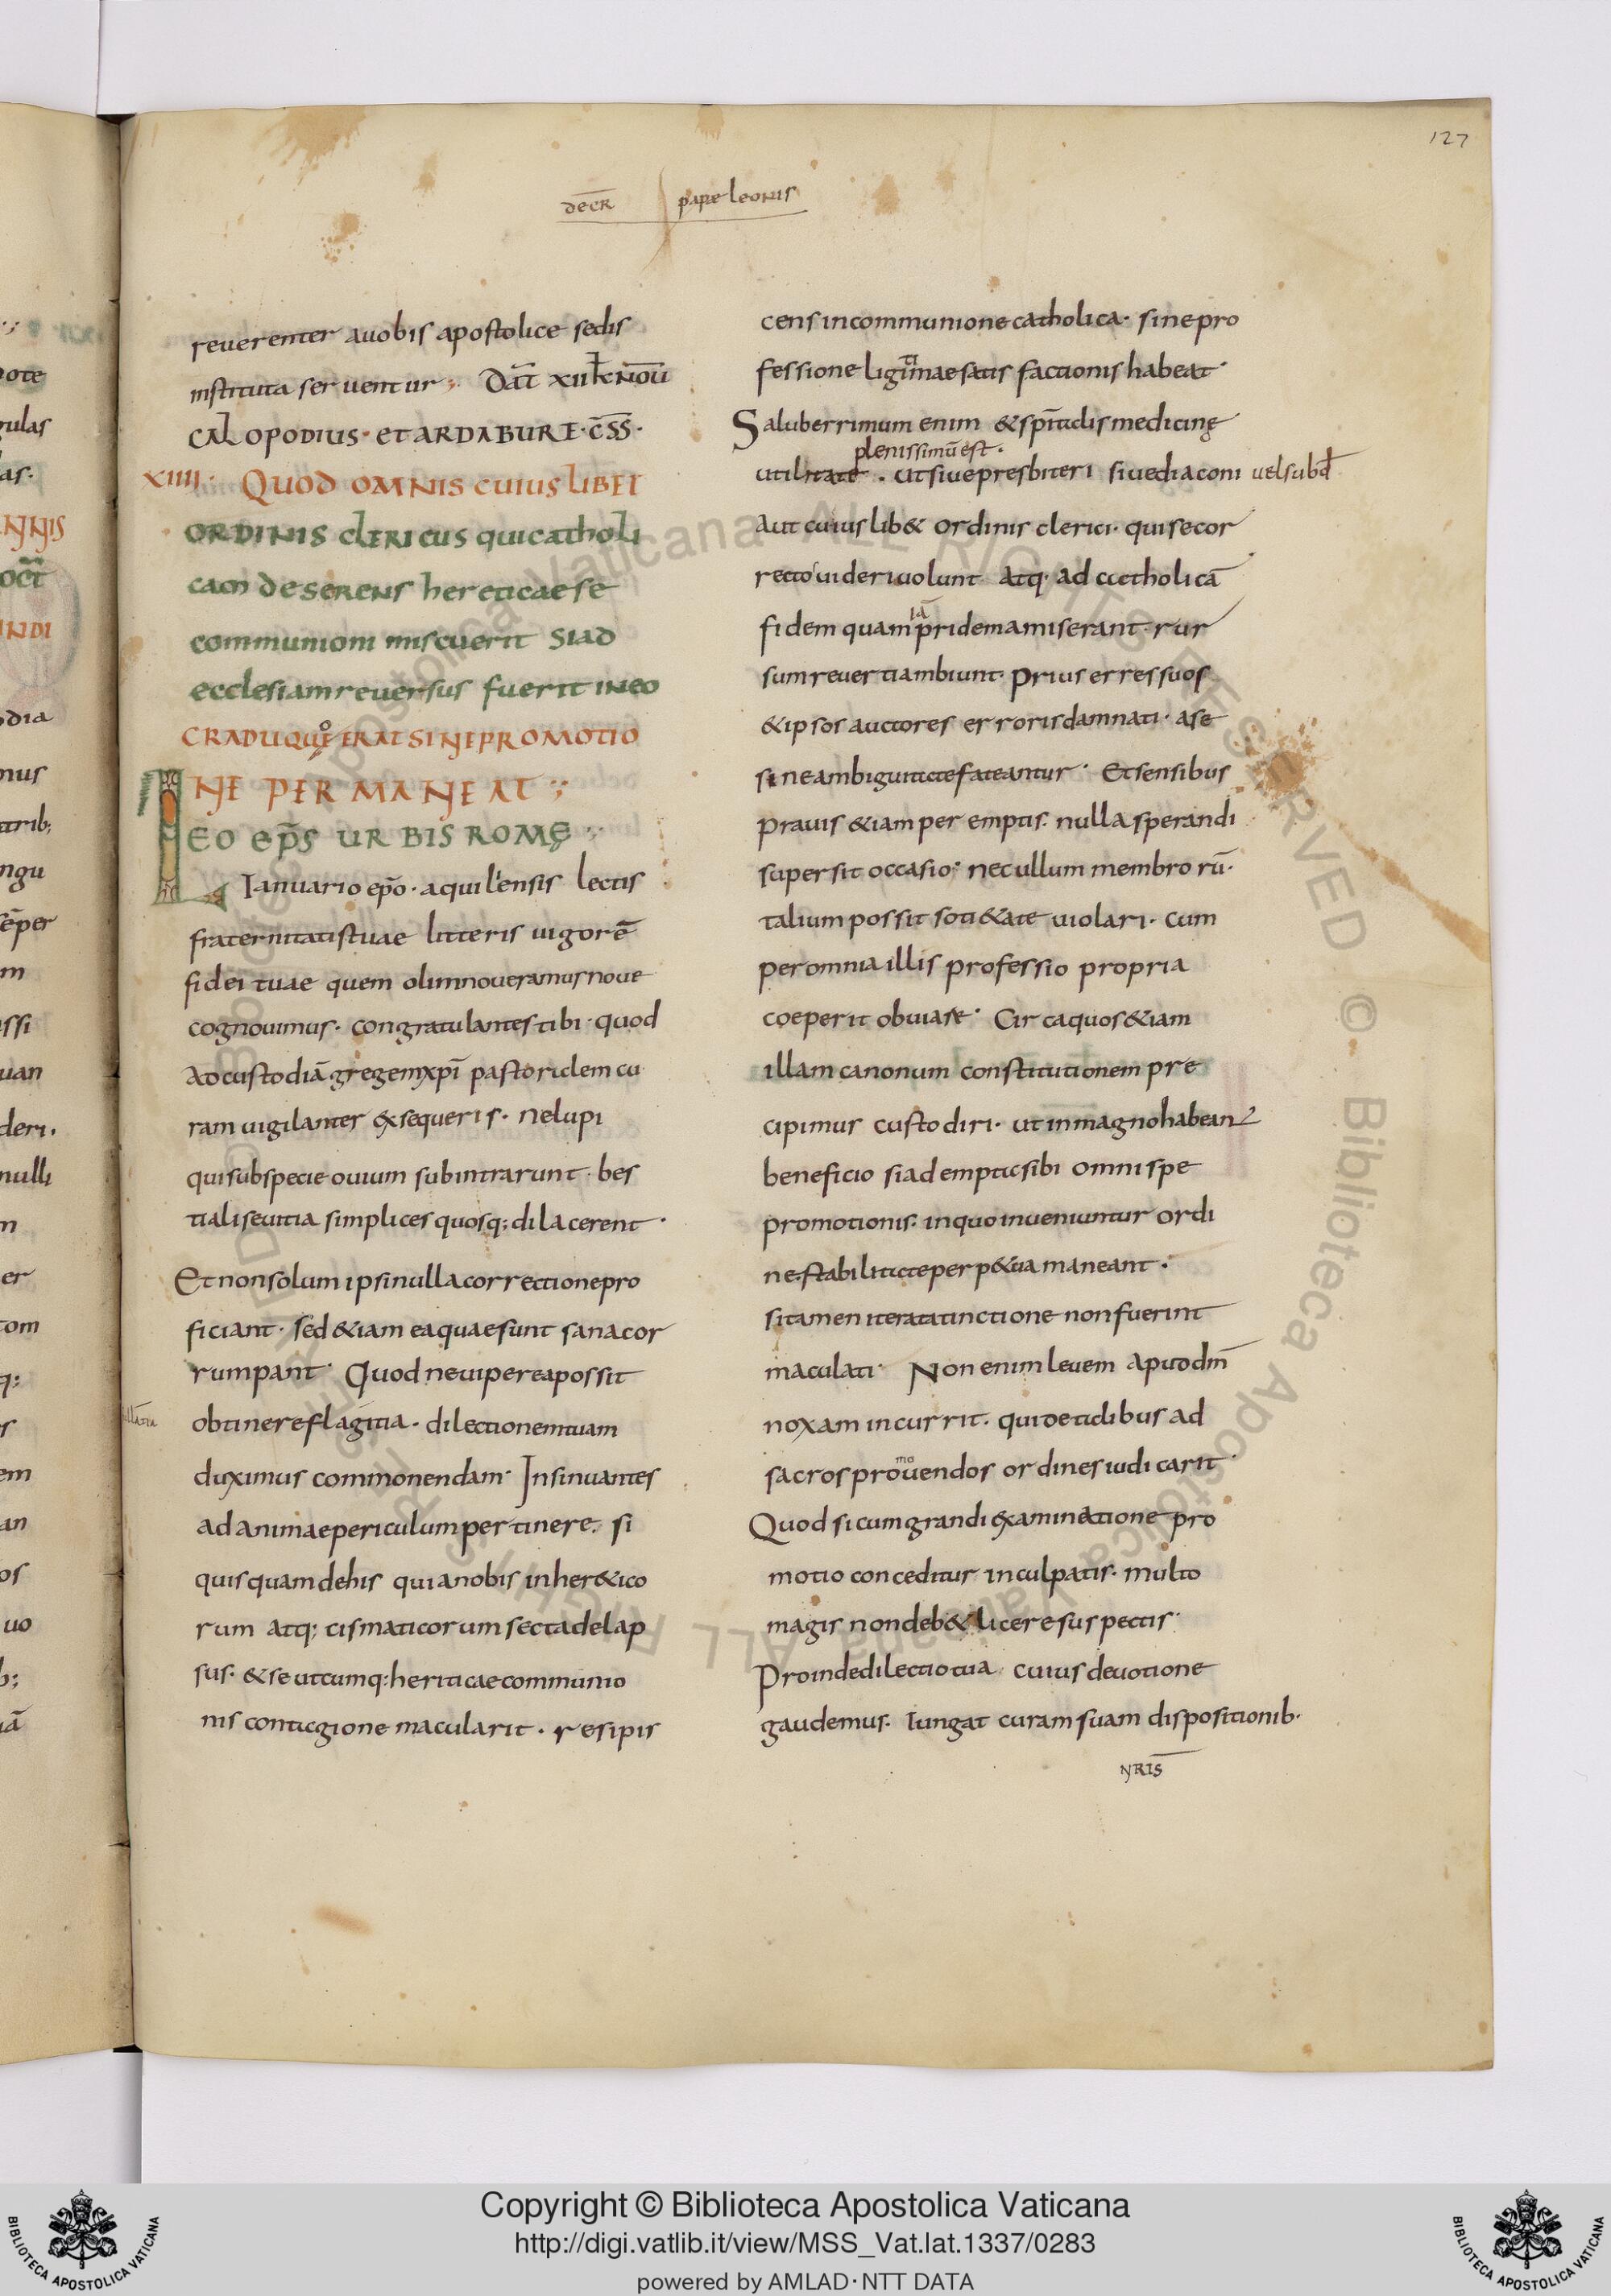 127
decr̄ pape leonis
reuerenter auobis apostolice sedis
instituta seruentur ; Dat̄ xii kl̄ nou̅
CALOPODIUS · ET ARDABURE · C̅S̅S̅ ·
XIIII · QUOD OMNIS CUIUSLIBET
ORDINIS CLERICUS quicatholi
cam deserens hereticae se
communioni miscuerit siad
ecclesiam reuersus fuerit ineo
CRADUQUO ERAT SINE PROMOTIO
NE PERMANEAT ;
LEO EP̅S URBIS ROMĘ
Ianuario ep̅o · aquileensis lectis
fraternitatistuae litteris uigore̅
fidei tuae quem olimnoueramusnoue
cognouimus · congratulantes tibi · quod
adcustodia̅ gregemxp̅i pastoralem cu
ram uigilanter exsequeris · nelupi
quisubspecie ouium subintrarunt · bes
tialiseuitia simplices quosq; dilacerent ·
Et nonsolum ipsinullacorrectionepro
ficiant · sed &iam eaquaesunt sanacor
rumpant · Quod neuipereapossit
obtinereflagitia · dilectionemtuam
duximus commonendam · Insinuantes
ad animaepericulumpertinere. si
quisquamdehis quianobis inher&ico
rum atq; cismaticorumsectadelap
sus · &seutcumq; heriticaecommunio
nis contagione macularit · resipis
cens incommunione catholica · sinepro
fessione ligitimaesatis factionis habeat ·
Saluberrimum enim &sp̅italis medicinę
plenissimu̅ est ·
utilitate · utsiuepresbiteri siuediaconi uelsubd̅
aut cuiuslib& ordinis clerici · quisecor
recto uideriuolunt atq· ad catholica̅
ia̅
fidem quampridemamiserant · rur
sumreuertiambiunt · prius erres suos
&ipsos auctores errorisdamnati · ase
sineambiguitatefateantur · Etsensibus
prauis &iam per emptis · nullasperandi
supersit occasio · nec ullum membroru̅ ·
talium possit soti&ate uiolari · cum
peromnia illis professio propria
coeperit obuiase · Circaquos&iam
illam canonum constitutionem pre
cipimur custodiri · ut inmagnohabean
beneficio siademptasibi omnispe
promotionis · inquo inueniuntur ordi
ne stabilitateperp&ua maneant ·
sitamen iteratatinctione nonfuerint
maculati · Non enimleuem aput dm̅
noxam incurrit · quidetalibus ad
mo
sacrosprouendos ordines iudicarit ·
Quod sicumgrandi examinatione pro
motio conceditur inculpatis · multo
magis nondeb& licere suspectis ·
Proindedilectiotua cuiusdeuotione
gaudemus · Iungat curam suam dispositionib·
nr̅is
Copyright © Biblioteca Apostolica Vaticana
http://digi.vatlib.it/view/MSS_Vat.lat.1337/0283
powered by AMLAD·NTT DATA
BIBLIOTECA APOSTOLICA VATICANA
BIBLIOTECA APOSTOLICA VATICANA